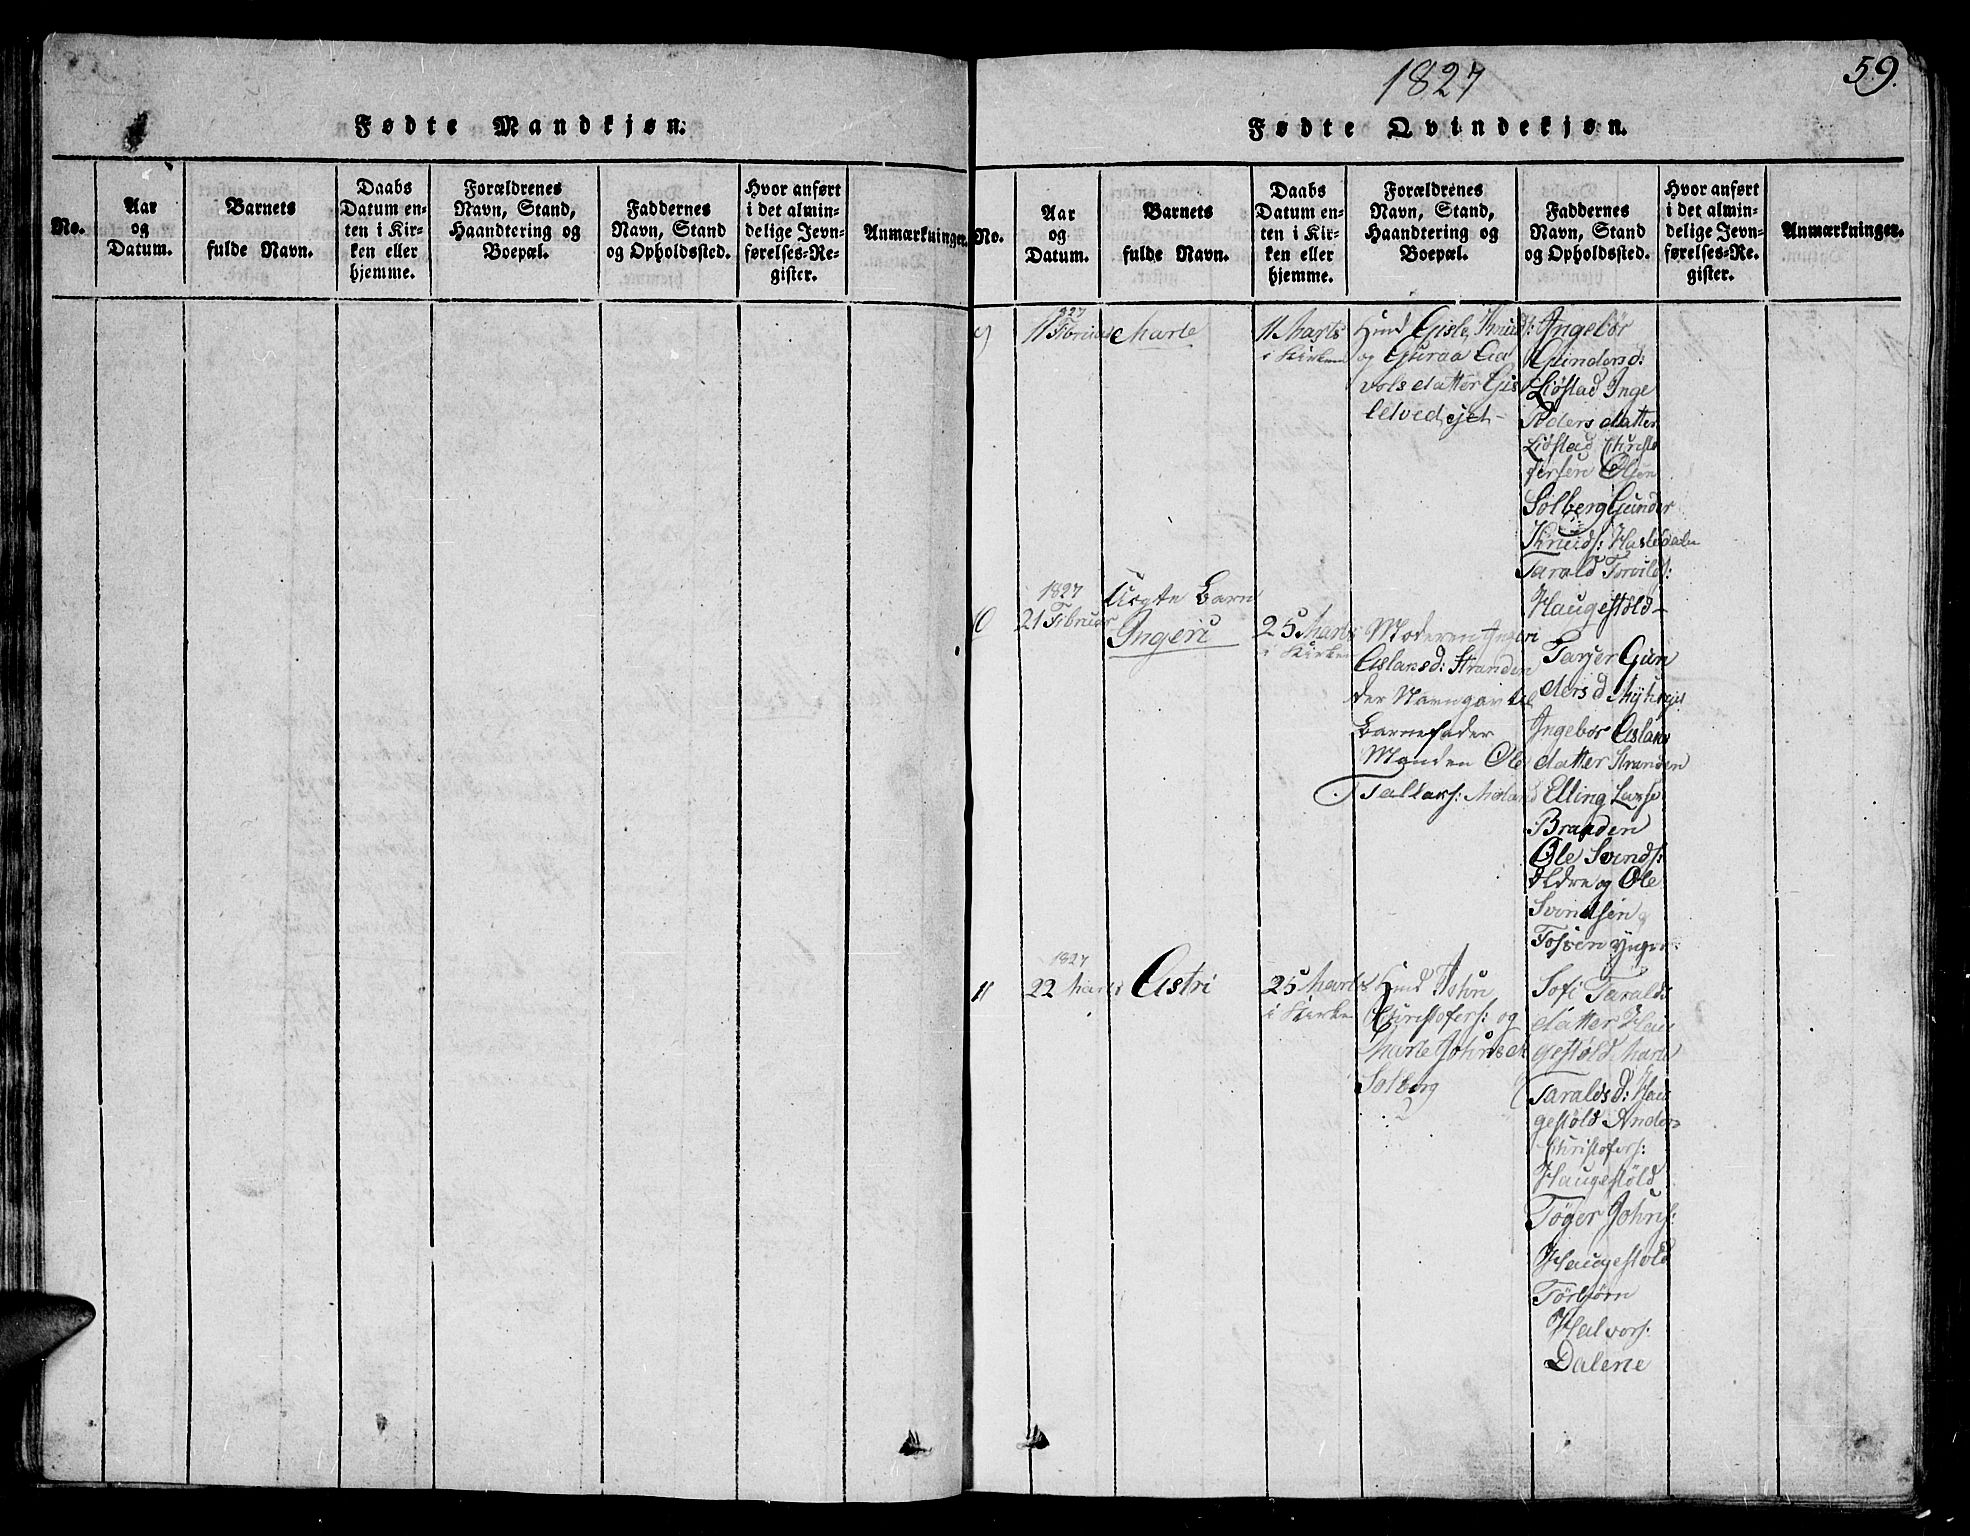 Fødte Mandkjøn.
No.
Aar
og
Datum.
Barnets
fulde Navn.
Daabs
Datum en-
ten i Kir-
ken eller
hjemme.
Forældrenes
Navn, Stand,
Haandtering og
Boepæl.
Faddernes
Navn, Stand
og Opholdssted.
Hvor anført
i det almin-
delige Jevn-
førelses-Re-
gister.
Anmærkninger.
1827
59.
Fødte Qvindekjøn.
No.
Aar
og
Datum.
Barnets
fulde Navn.
Daabs
Datum en-
ten i Kir-
ken eller
hjemme.
Forældrenes
Navn, Stand,
Haandtering og
Boepæl.
Faddernes
Navn, Stand
og Opholdssted.
Hvor anført
i det almin-
delige Jevn-
førelses-Re-
gister.
Anmærkninger.
9
11
Marte
11 Marts
i Kirken
Gisle Knuds:
og Guraa Aa
vols datter Gis
Ingebor
Gundersd:
Liøstad Inge
Peders datter
Liøstad Christo
fersen Olsen
Solberg Gunder
Knuds: Hasledalen
Tarald Torvilds:
Haugestøld
10
1827
21 Februar
Uegte Barn
Ingeri
25 Marts
i Kirken
Moderen Ingeri
Aslansd: Stranden
der Navngav til
Barnefader
Manden Ole
Tarjer Gun
ders d
Ingebor Aslans
datter Stranden
Elling Larse
Braaden
Ole Svends:
Eldre og Ole
Svendsen
Tosven yngre
11
1827
22 Marts
Astri
25 Marts
i Kirken
John
Christofers: og
Marte Johns d
Solberg
Sofi Taralds
datter Hau
gestøld Marte
Taralds d: Hau
gestøld Anders
Christofers:
Haugestøld
Tøger Johns:
Haugestøld
Torbjørn
Halvors:
Dalene